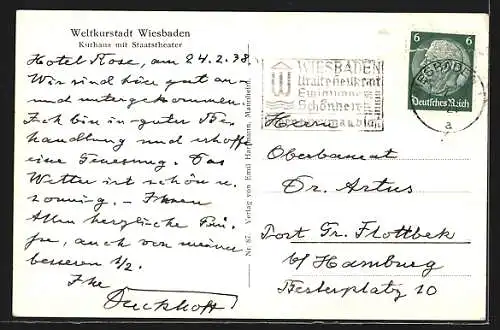 Weltkurstadt Wiesbaden
Kurhaus mit Staatstheater
Hotel Rose, am 24.2.38.
Wir sind hier gut an-
und untergekommen.
Ich bin in guter Be-
handlung und erhoffe
eine Genesung. Das
Wetter ist schön u.
sonnig. – Ihnen
Allen herzliche Grü-
sse, auch von meiner
besseren 1/2.
Ihr
Nr. 67. Verlag von Emil Hartmann, Mannheim.
WIESBADEN
6 6
Deutsches Reich
a
Herrn
Oberbaurat
Dr. Artus
Post Gr. Flottbek
b/ Hamburg
10